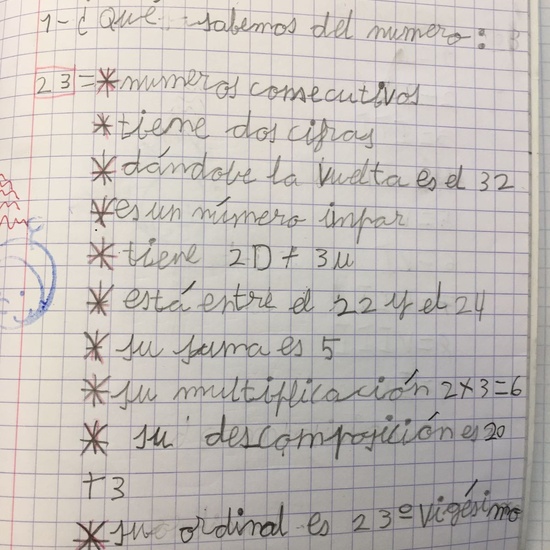 1- ¿Qué sabemos del numero:
23 = * numeros consecutivos
* tiene dos cifras
* dándole la vuelta es el 32
* es un número impar
* tiene 2D + 3u
* está entre el 22 y el 24
* su suma es 5
* su multiplicación 2x3=6
* su descomposición es 20
+3
* su ordinal es 23º vigésimo